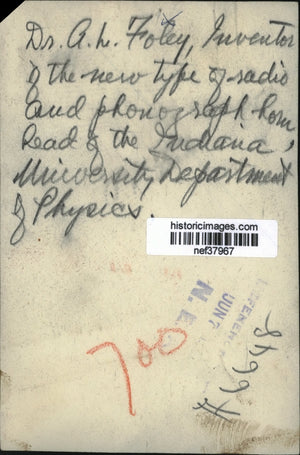 Dr. A. L. Foley, Inventor
of the new type of radio
and phonograph horn,
Head of the Indiana
University Department
of Physics.
historicimages.com
nef37967
JUN 7
N. E.
700